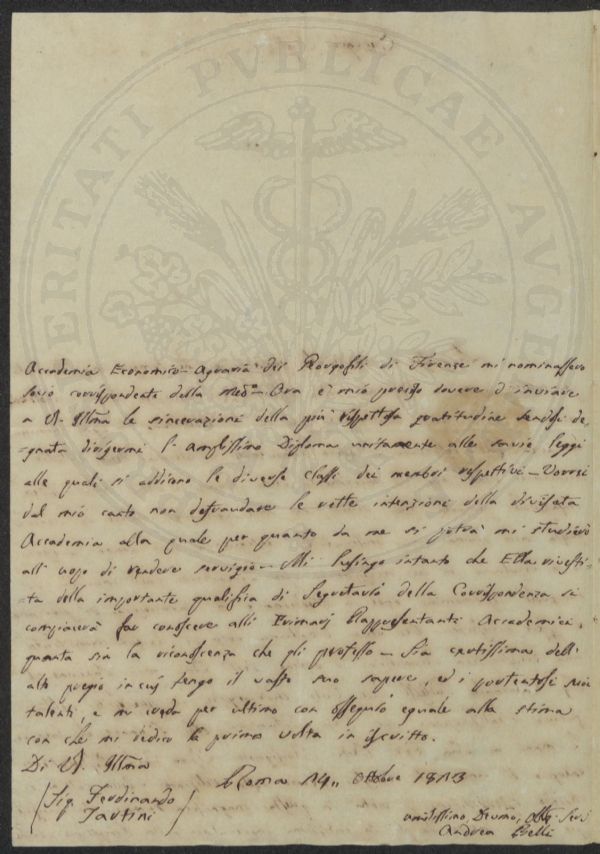 VERITATI PVBLICAE AVGE
Accademia Economico-Agraria dei Georgofili di Firenze mi nominassero
socio corrispondente della med.a Ora è mio preciso dovere d'inviare
a V.S. Illma le sincerazioni della più rispettosa gratitudine sendosi de-
gnata dirigermi l'amplissimo Diploma unitamente alle savie leggi
alle quali si addicono le diverse classi dei membri rispettivi - Vorrei
dal mio canto non defraudare le rette intenzioni della divisata
Accademia alla quale per quanto da me si potrà mi studierò
all'uopo di rendere servizio - Mi lusingo intanto che Ella rivesti-
ta della importante qualifica di Segretario della Corrispondenza si
compiacerà far conoscere alli Primarj Rappresentanti Accademici,
quanta sia la riconoscenza che gli professo - Sia certissima dell'
alto pregio in cui tengo il vasto suo sapere, ed i portentosi suoi
talenti, e mi creda per ultimo con ossequio eguale alla stima
con che mi dedico la prima volta in iscritto.
Di V.S. Illma
Roma 14, Ottobre 1843
Sig. Ferdinando
Tartini
umilissimo, Devmo, Obb. Serv
Andrea Belli